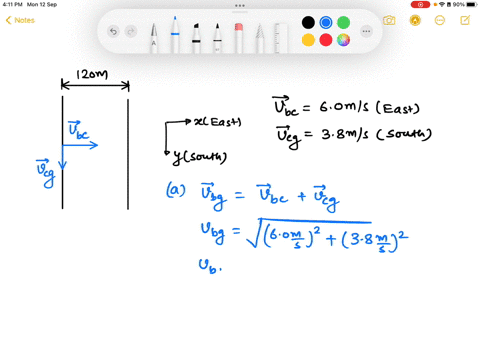 4:11 PM Mon 12 Sep
90%
Notes
120m
V⃗bc
V⃗cg
x(East)
y(south)
V⃗bc = 6.0m/s (East)
V⃗cg = 3.8m/s (South)
(a) V⃗bg = V⃗bc + V⃗cg
Vbg = √(6.0 m/s)² + (3.8 m/s)²
Vb.